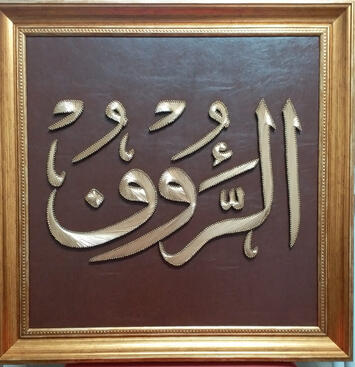 الرَّؤُوفُ